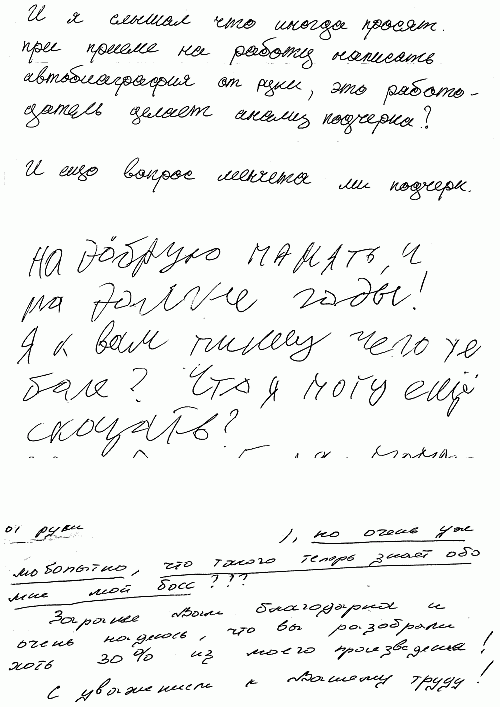 И я слышал что иногда просят
при приеме на работу написать
автобиаграфия от руки, это работо-
датель делает анализ подчерка?
И ещо вопрос менчета ли подчерк.
На добрую память, и
на долгие годы!
Я к вам пишу чего же
боле? Что я могу ещё
сказать?
от руки ), но очень уж
любопытно, что такого теперь знает обо
мне мой босс???
Заранее Вам благодарна и
очень надеюсь, что вы разобрали
хоть 30% из моего произведения!
С уважением к Вашему труду!